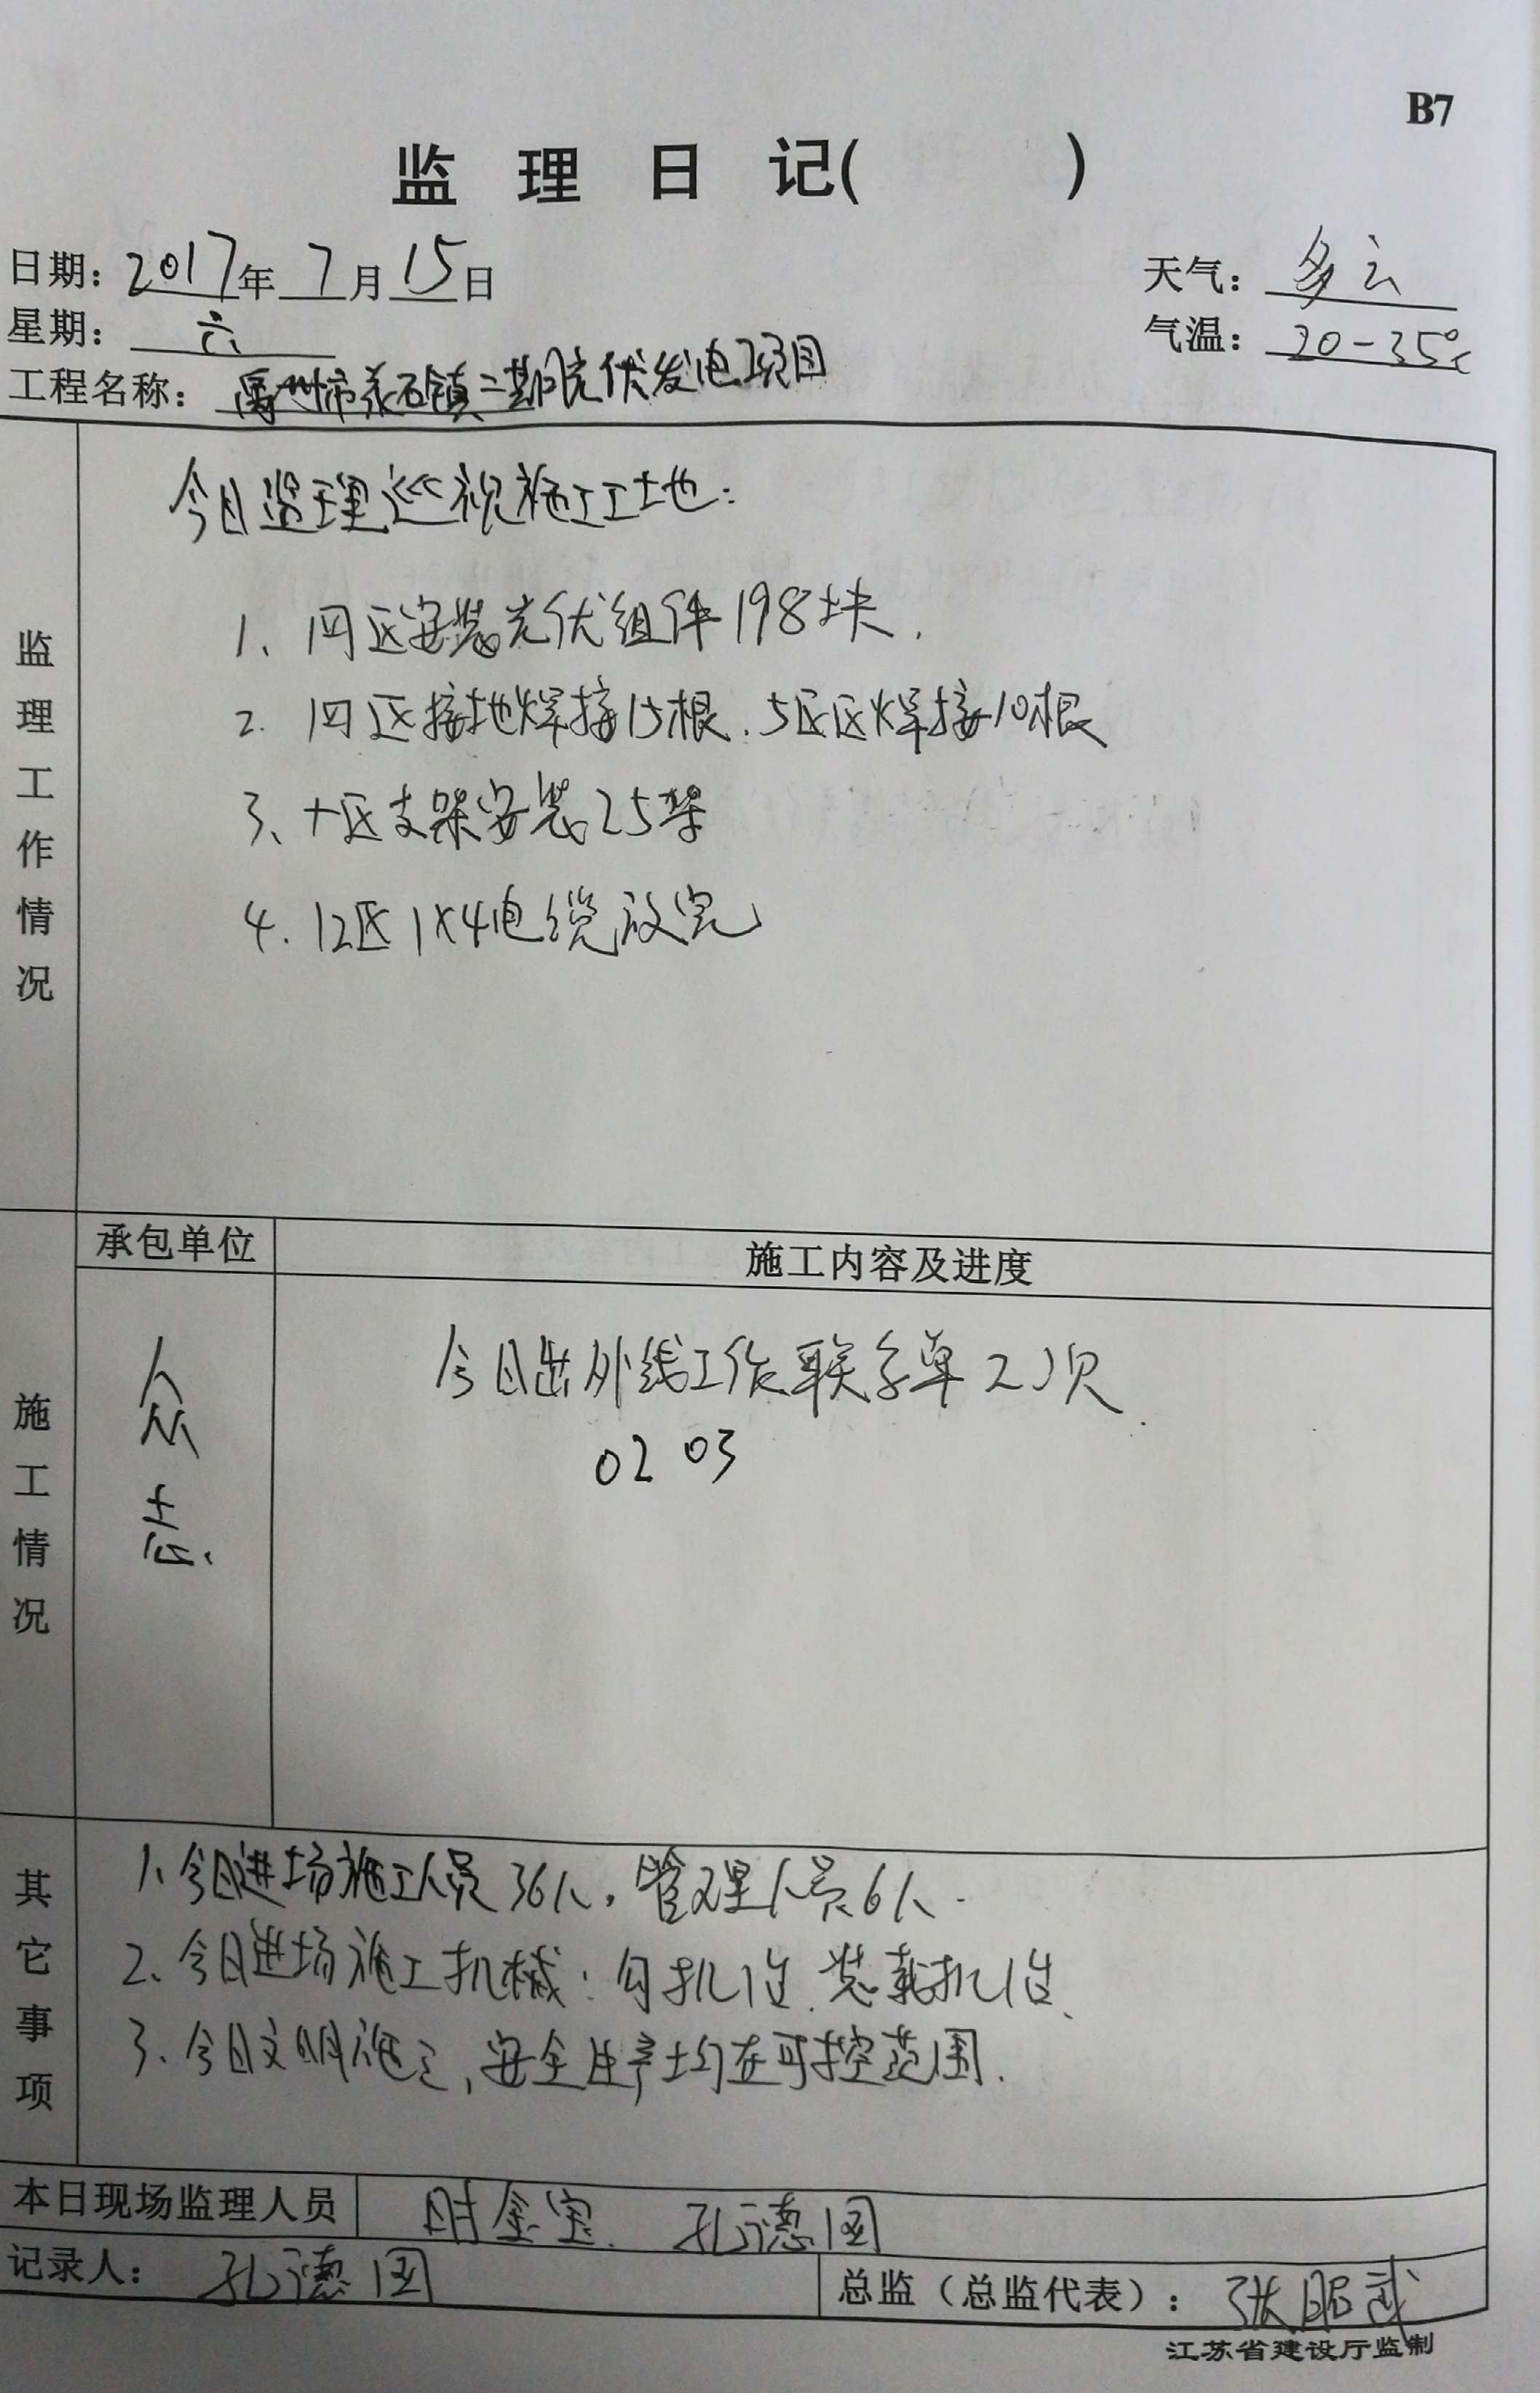 B7
监理日记( )
日期: 2017年7月15日
天气: 多云
星期: 六
气温: 20-35℃
工程名称: 禹州市苌石镇二期光伏发电项目
监理工作情况
今日监理巡视施工工地:
1、四区安装光伏组件198块.
2. 四区接地焊接15根.5区区焊接10根
3、十区支架安装25架
4. 12区1×4电缆放完
施工情况
承包单位
施工内容及进度
众志
今日出外线工作联系单2次.
02 03
其它事项
1、今日进场施工人员36人,管理人员6人.
2、今日进场施工机械:勾机1台、装载机1台、
3、今日文明施工,安全生产均在可控范围.
本日现场监理人员 时金宝、孔德国
记录人: 孔德国
总监(总监代表): 张昭武
江苏省建设厅监制